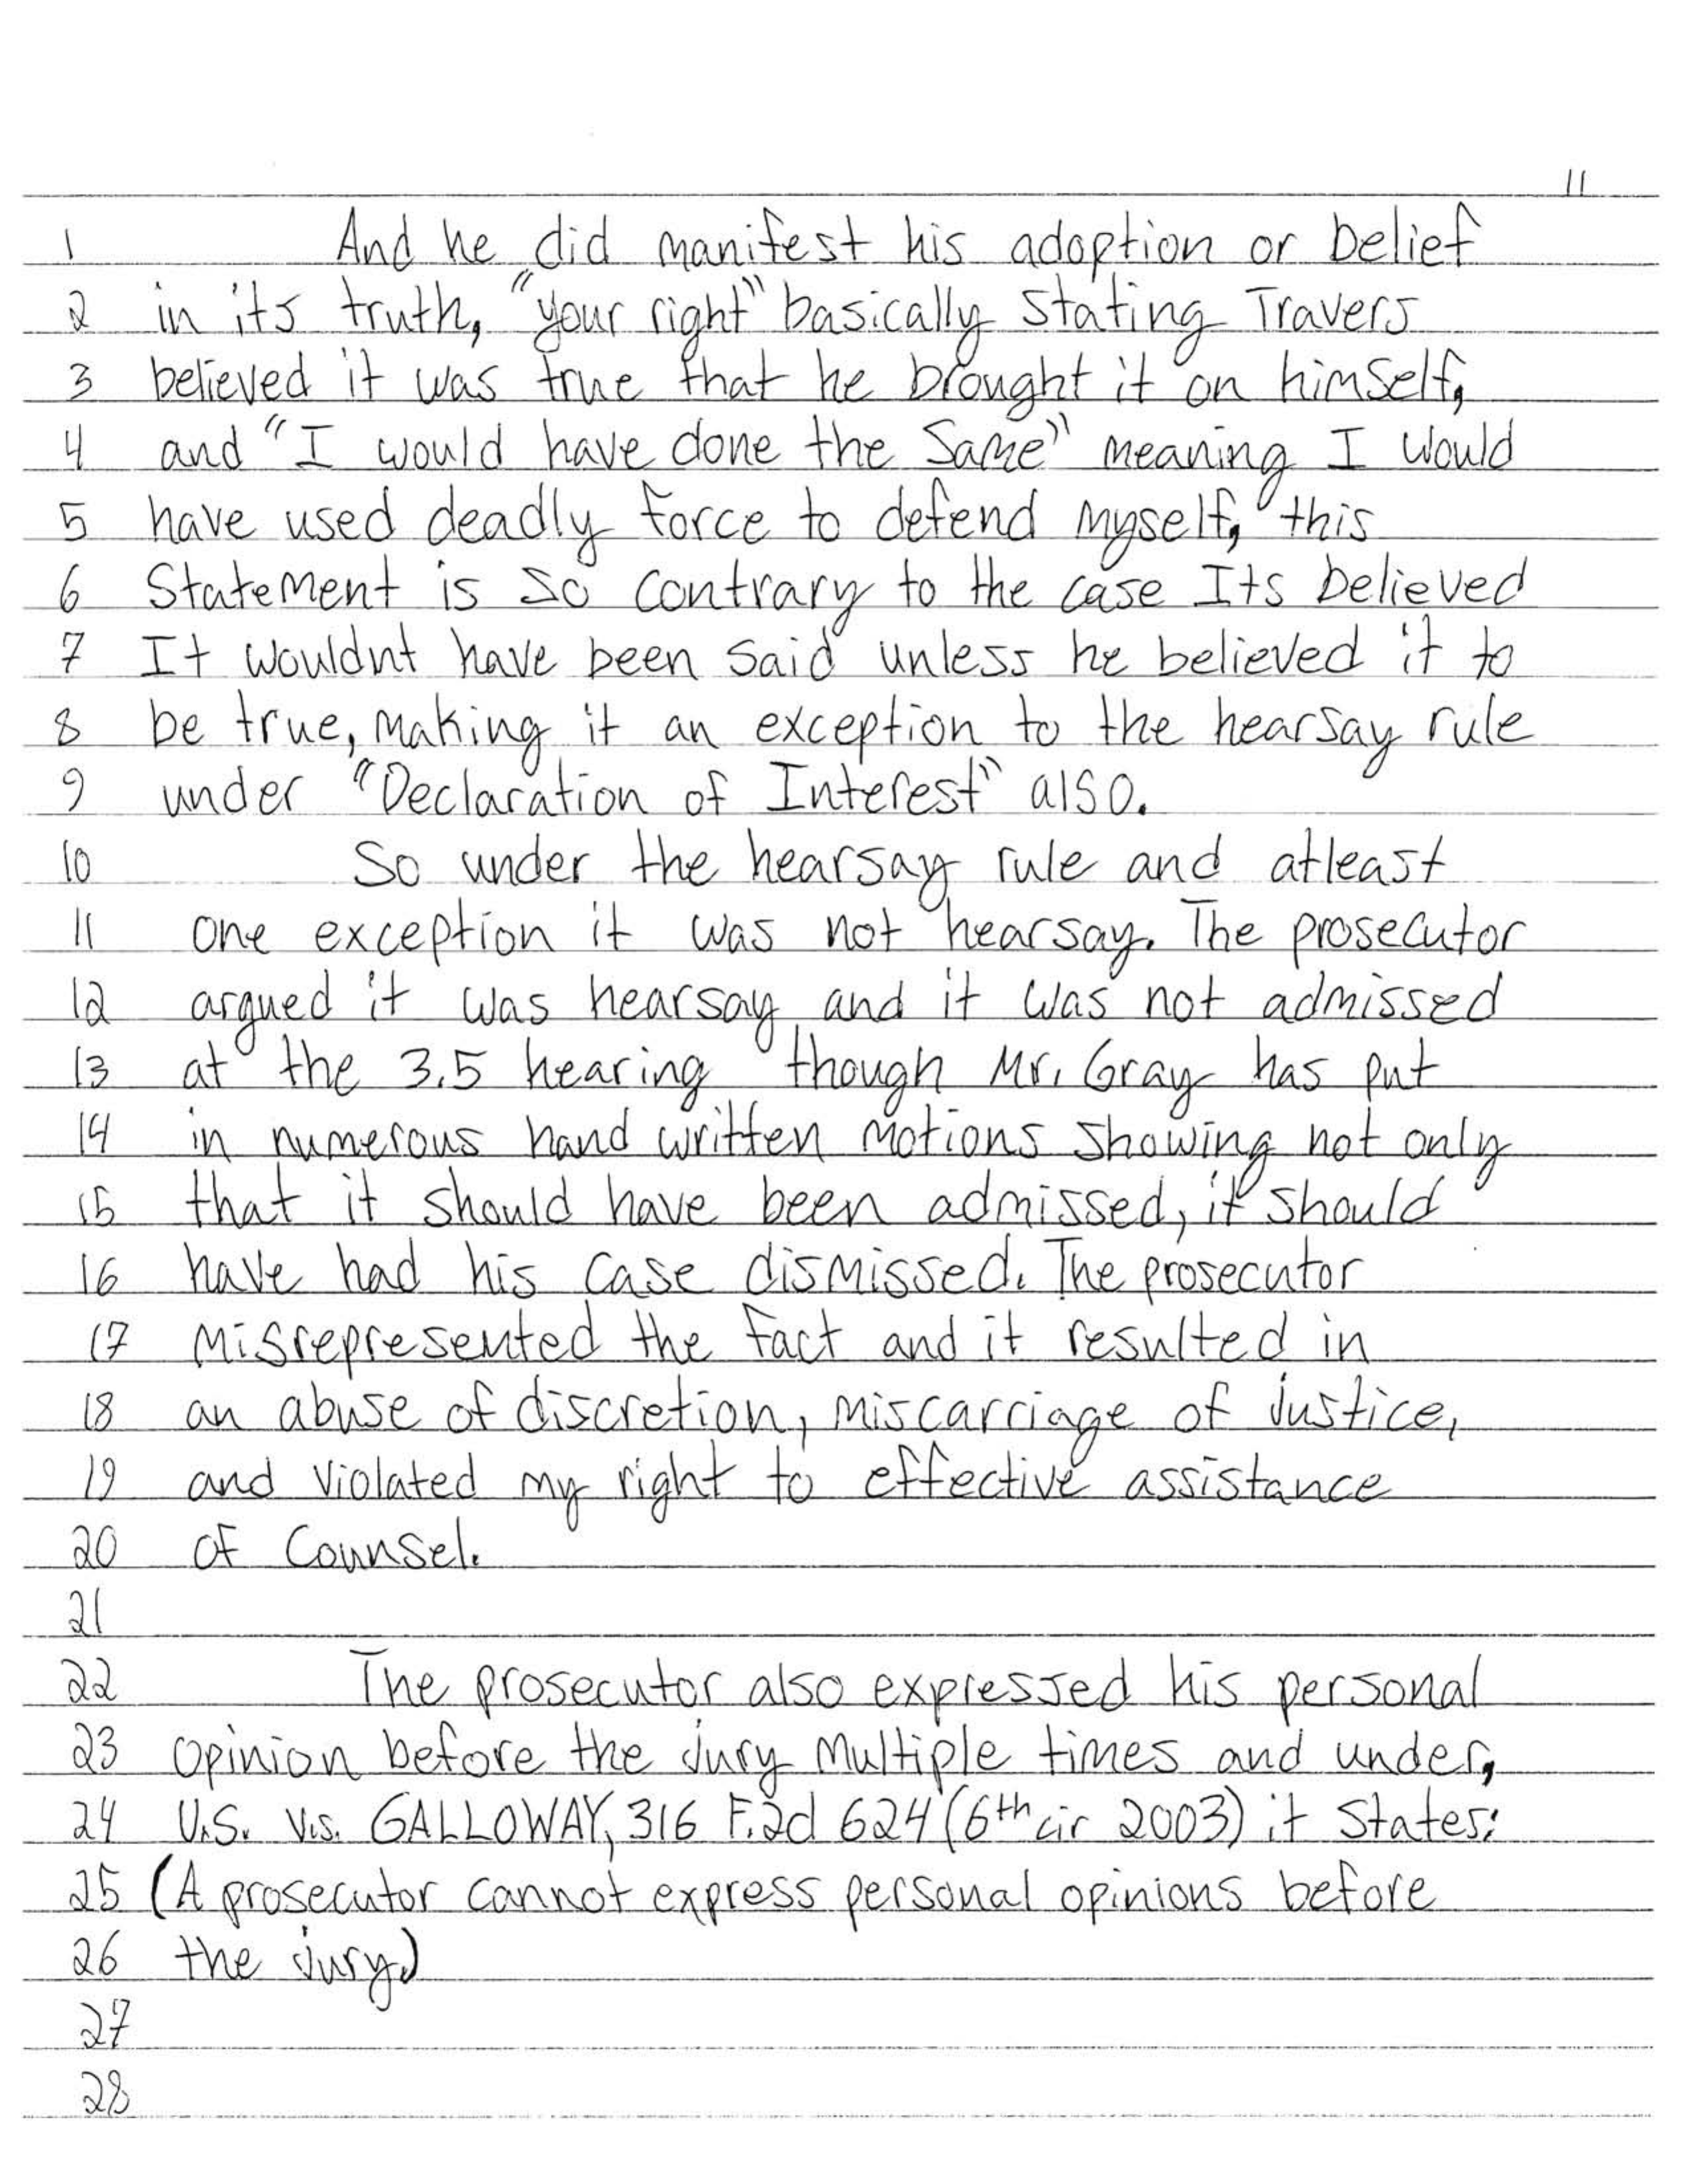 11
1 And he did manifest his adoption or belief
2 in its truth, "your right" basically stating Travers
3 believed it was true that he brought it on himself,
4 and "I would have done the Same" meaning I would
5 have used deadly force to defend myself, this
6 Statement is so contrary to the case Its believed
7 It wouldnt have been said unless he believed it to
8 be true, making it an exception to the hearsay rule
9 under "Declaration of Interest" also.
10 So under the hearsay rule and atleast
11 one exception it was not hearsay. The prosecutor
12 argued it was hearsay and it was not admissed
13 at the 3.5 hearing though Mr. Gray has put
14 in numerous hand written motions showing not only
15 that it should have been admissed, it should
16 have had his case dismissed. The prosecutor
17 misrepresented the fact and it resulted in
18 an abuse of discretion, miscarriage of justice,
19 and violated my right to effective assistance
20 of Counsel.
21
22 The prosecutor also expressed his personal
23 opinion before the jury multiple times and under,
24 U.S. v.s. GALLOWAY, 316 F.2d 624 (6th cir 2003) it states:
25 (A prosecutor cannot express personal opinions before
26 the jury.)
27
28